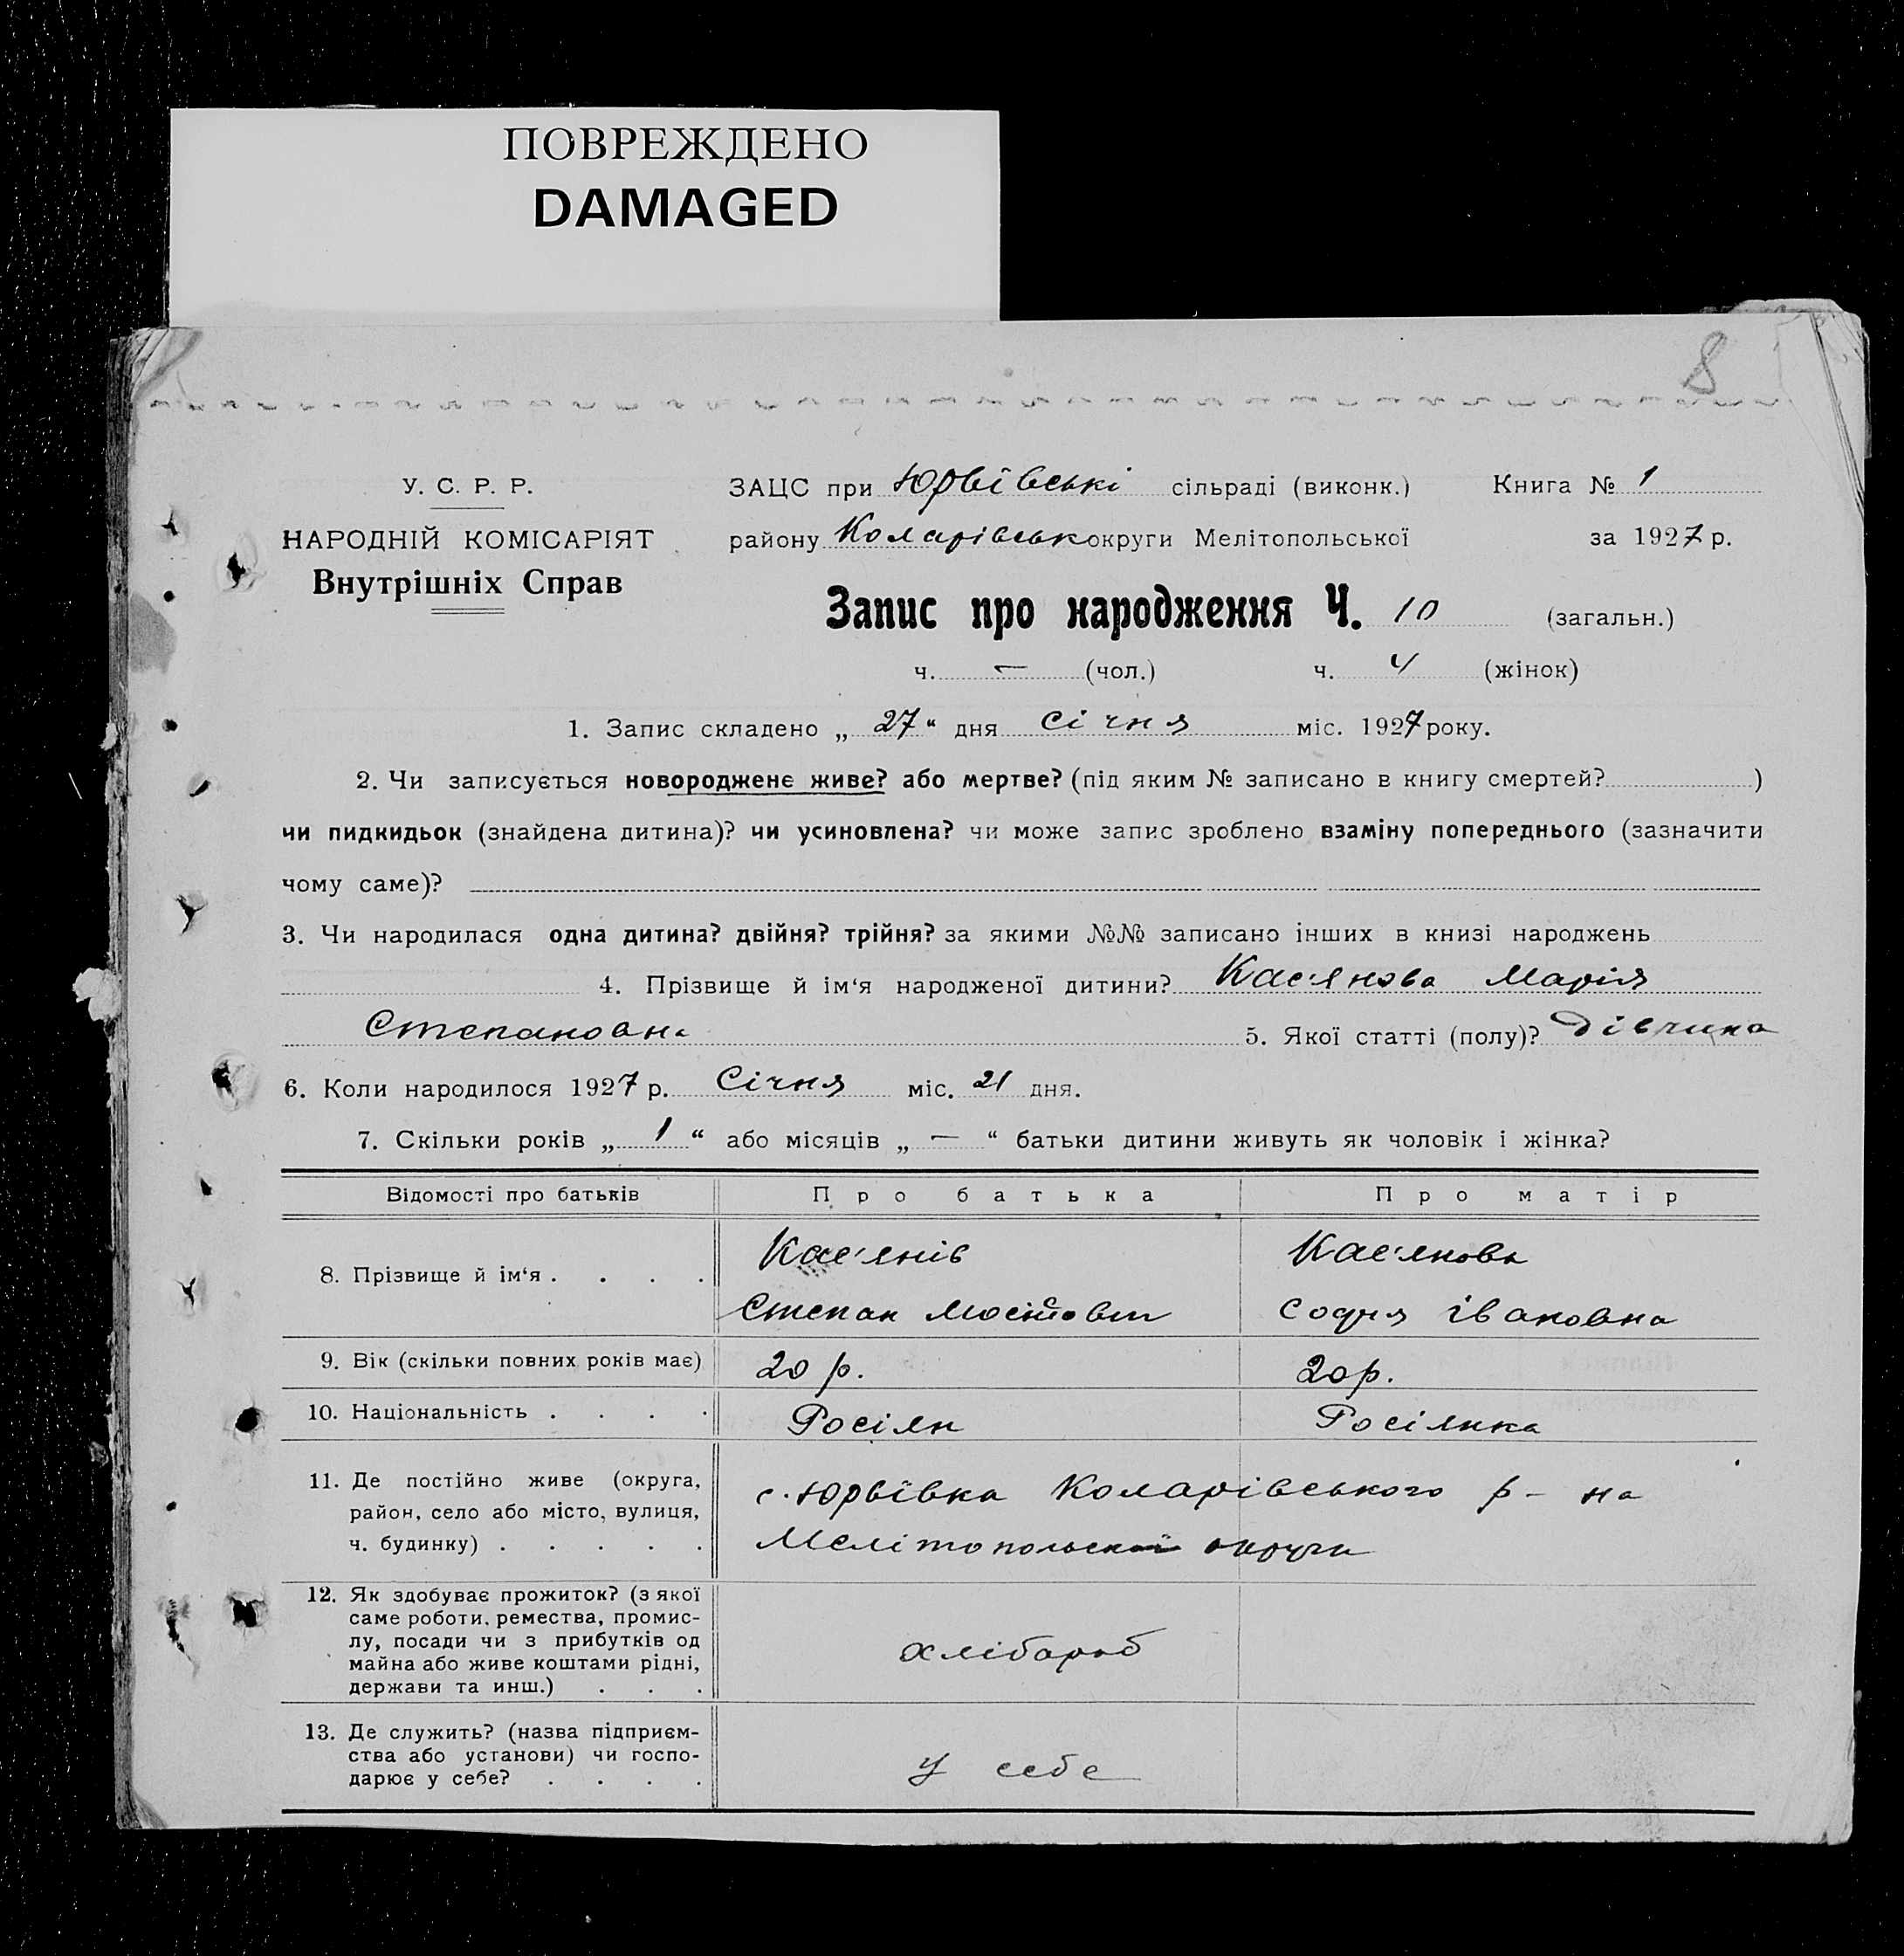 ПОВРЕЖДЕНО
DAMAGED
8
У. С. Р. Р.
НАРОДНІЙ КОМІСАРІЯТ
Внутрішніх Справ
ЗАЦС при Юрвівські сільраді (виконк.) Книга № 1
району Коларівськ округи Мелітопольської за 1927 р.
Запис про народження Ч. 10 (загальн.)
ч. — (чол.) ч. 4 (жінок)
1. Запис складено „ 27 “ дня січня міс. 1927 року.
2. Чи записується новороджене живе? або мертве? (під яким № записано в книгу смертей? )
чи пидкидьок (знайдена дитина)? чи усиновлена? чи може запис зроблено взаміну попереднього (зазначити
чому саме)?
3. Чи народилася одна дитина? двійня? трійня? за якими №№ записано інших в книзі народжень
4. Прізвище й ім‘я народженої дитини? Кас'янова Марія
Степановна 5. Якої статті (полу)? дівчина
6. Коли народилося 1927 р. Січня міс. 21 дня.
7. Скільки років „ 1 “ або місяців „ — “ батьки дитини живуть як чоловік і жінка?
Відомості про батьків Про батька Про матір
8. Прізвище й ім‘я . . . . Кас'янів Кас'янова
Степан Софія Івановна
9. Вік (скільки повних років має) 20 р. 20 р.
10. Національність . . . . Росіян Росіянка
11. Де постійно живе (округа,
район, село або місто, вулиця,
ч. будинку) . . . . .
с. Юрвівка Коларівського р-на
Мелітопольської округи
12. Як здобуває прожиток? (з якої
саме роботи, ремества, промис-
лу, посади чи з прибутків од
майна або живе коштами рідні,
держави та инш.) . . .
хлібароб
13. Де служить? (назва підприєм-
ства або установи) чи госпо-
дарює у себе? . . . .
у себе